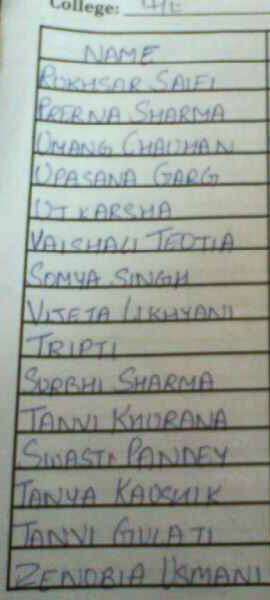 College:
NAME
RUKHSAR SAIFI
PRERNA SHARMA
UMANG CHAUHAN
UPASANA GARG
UTKARSHA
VAISHALI TEOTIA
SOMYA SINGH
VIJETA LIKHYANI
TRIPTI
SURBHI SHARMA
TANVI KHURANA
SWASTI PANDEY
TANYA KAUSHIK
TANVI GULATI
ZENOBIA USMANI